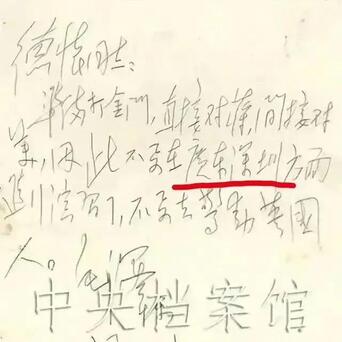 德怀同志:
准备打金门,直接对蒋,间接对
美,因此不要在广东深圳方面
进行演习了,不要去惊动英国
人。
中央档案馆